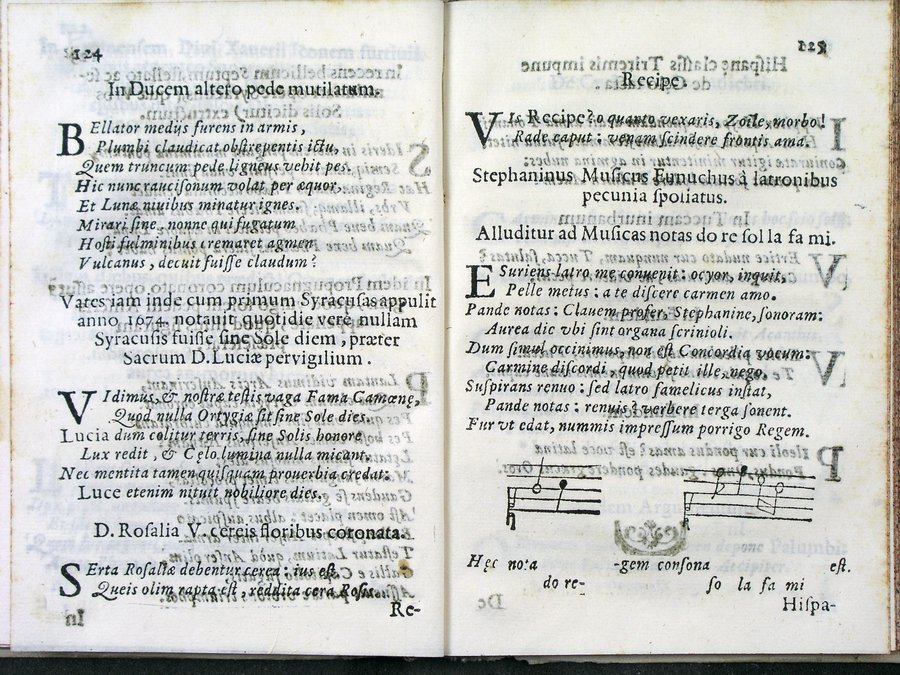 124
In Ducem altero pede mutilatum.
Bellator medijs furens in armis,
Plumbi claudicat obstrepentis ictu,
Quem truncum pede ligneus vehit pes.
Hic nunc raucisonum volat per æquor,
Et Lunæ niuibus minatur ignes.
Mirari sine, nonne qui fugatum
Hosti fulminibus cremaret agmen
Vulcanus, decuit fuisse claudum?
Vates iam inde cum primum Syracusas appulit
anno 1674. notauit quotidie verè nullam
Syracusis fuisse sine Sole diem, præter
Sacrum D. Luciæ peruigilium.
Vidimus, & nostræ testis vaga Fama Camœnę,
Quod nulla Ortygiæ sit sine Sole dies.
Lucia dum colitur terris, sine Solis honore
Lux redit, & Cęlo lumina nulla micant.
Nec mentita tamen quisquam prouerbia credat:
Luce etenim nituit nobiliore dies.
D. Rosalia V. cereis floribus coronata.
Serta Rosaliæ debentur cerea: ius est
Queis olim rapta est, reddita cera Rosis.
Re-
Recipe.
Vis Recipe? o quanto vexaris, Zoile, morbo!
Rade caput: venam scindere frontis ama.
Stephaninus Musicus Eunuchus à latronibus
pecunia spoliatus.
Alluditur ad Musicas notas do re sol la fa mi.
Esuriens latro me conuenit: ocyor, inquit,
Pelle metus: a te discere carmen amo.
Pande notas: Clauem profer, Stephanine, sonoram:
Aurea dic vbi sint organa scrinioli.
Dum simul occinimus, non est Concordia vocum:
Carmine discordi, quod petit ille, nego.
Suspirans renuo: sed latro famelicus instat,
Pande notas: renuis? verbere terga sonent.
Fur vt edat, nummis impressum porrigo Regem.
Hęc nota -gem consona est.
do re- so la fa mi
Hispa-